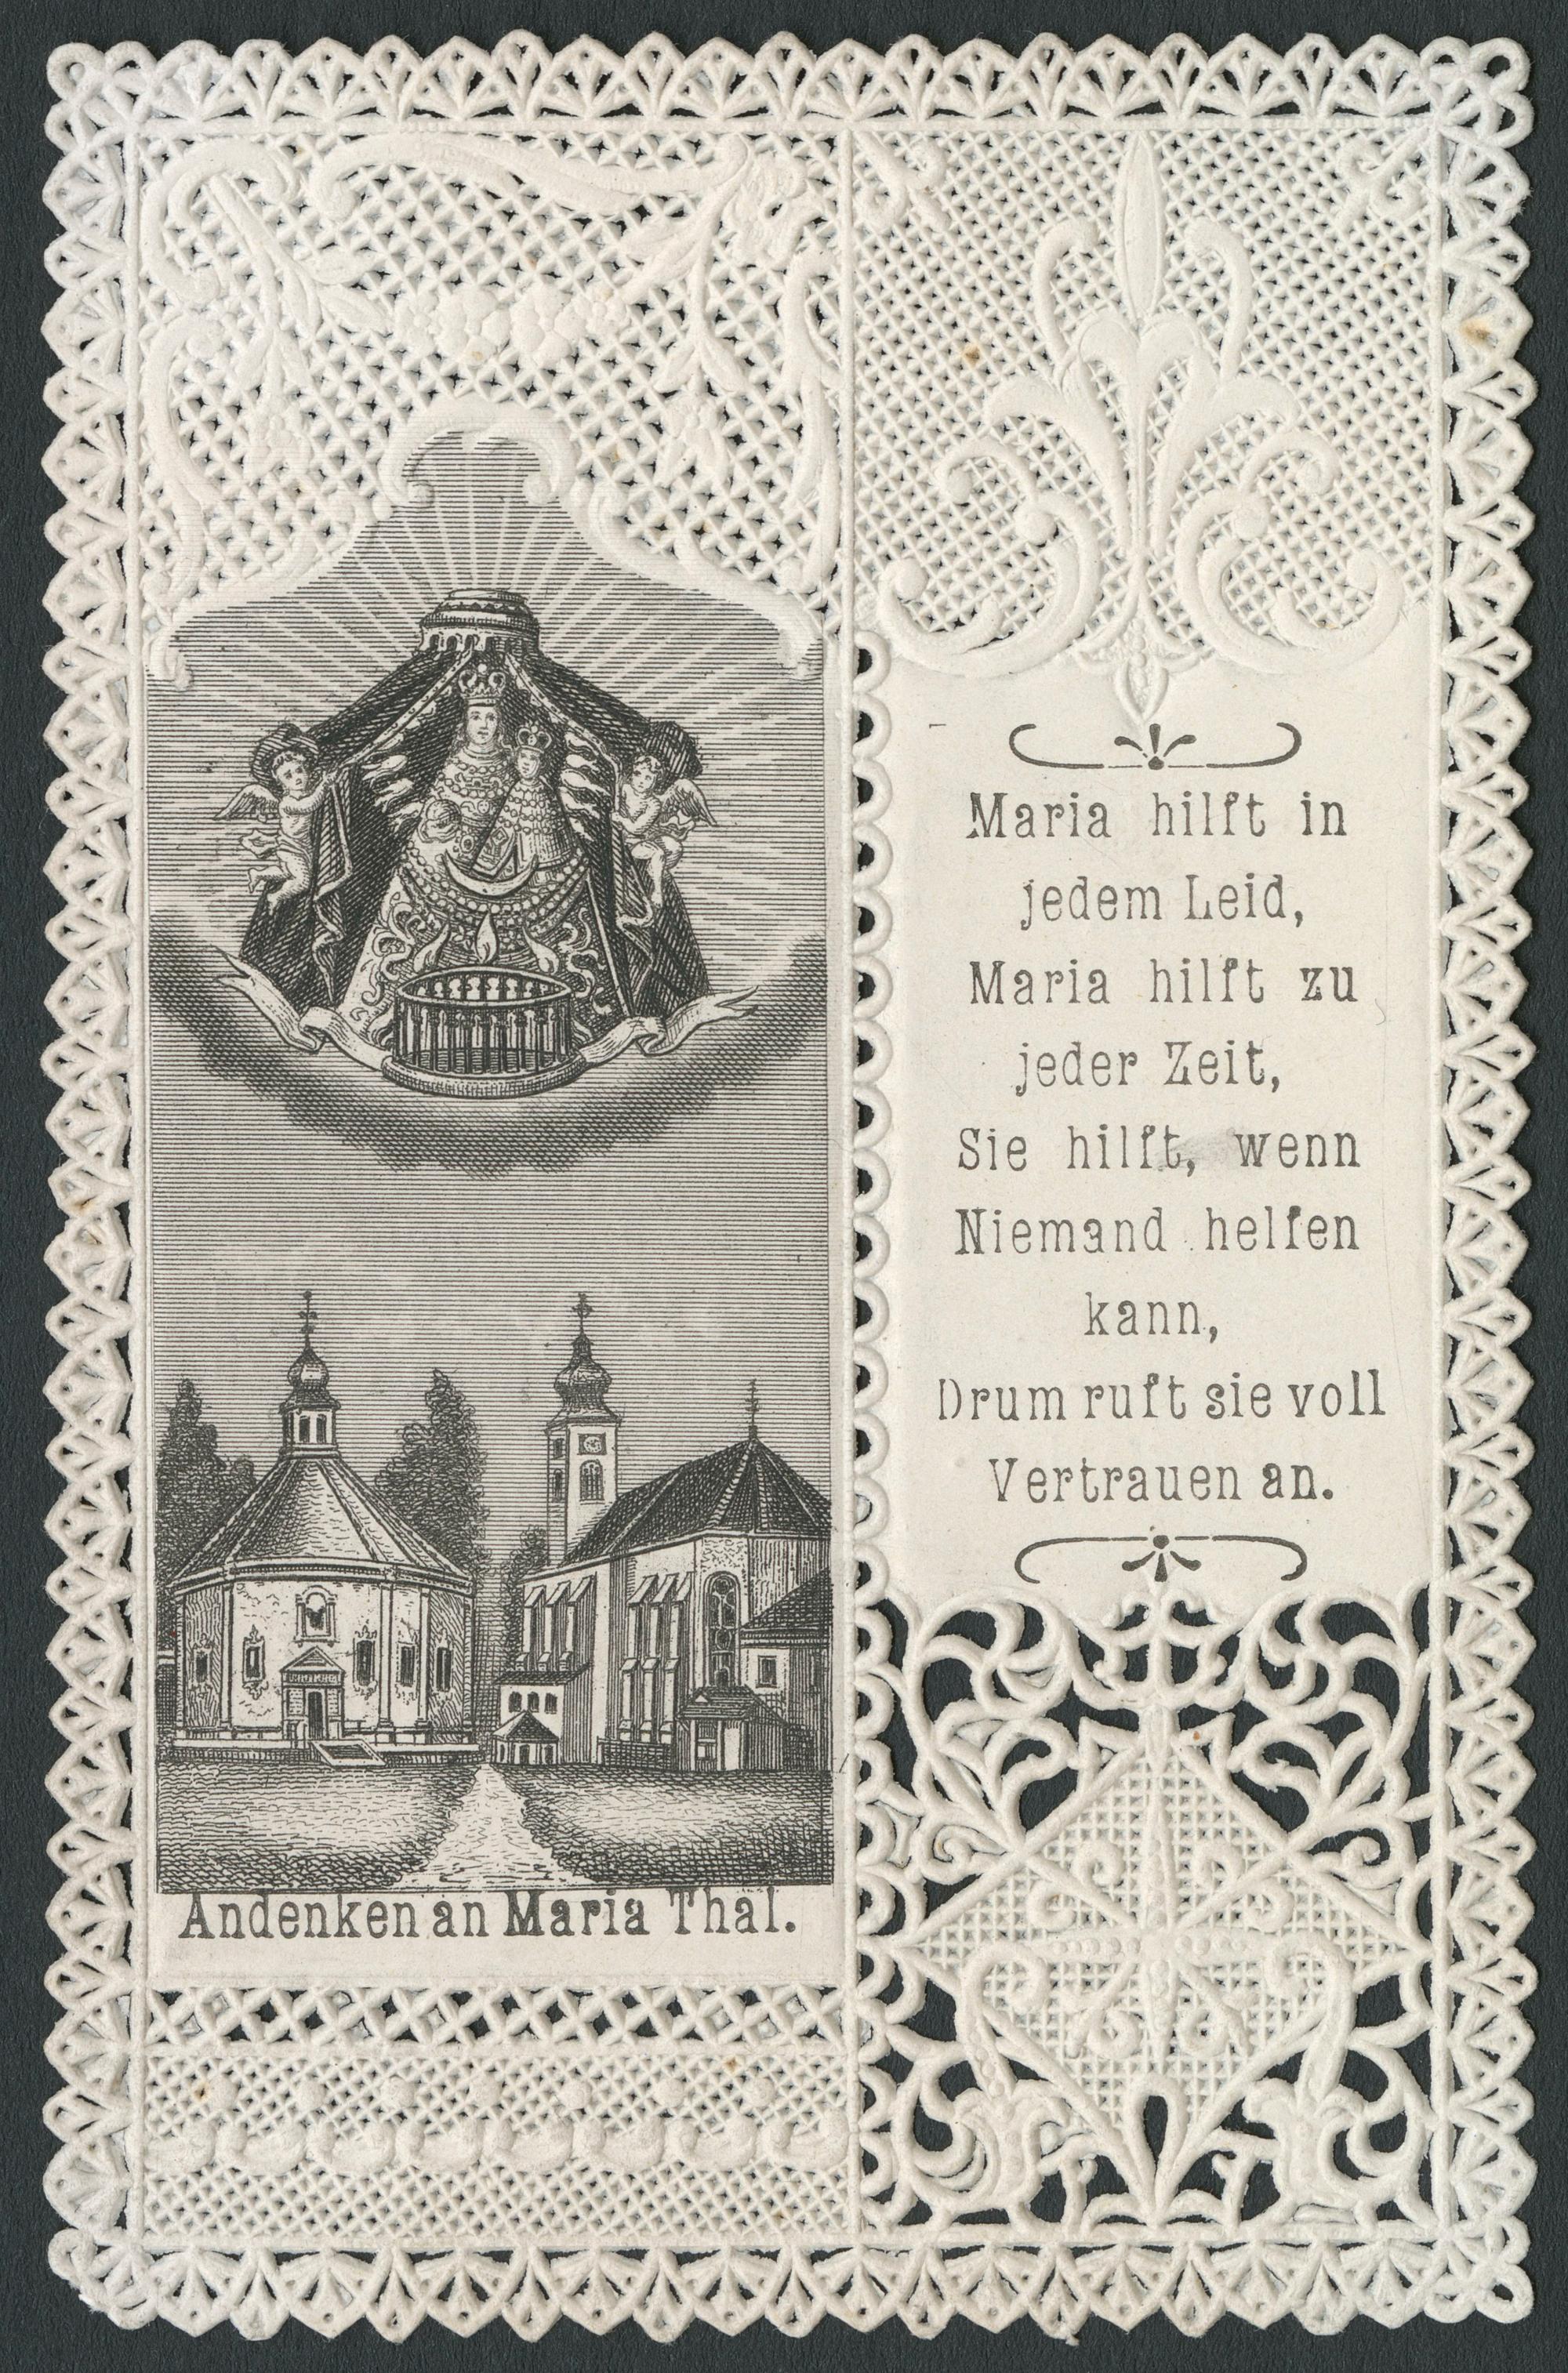 Andenken an Maria Thal.
Maria hilft in
jedem Leid,
Maria hilft zu
jeder Zeit,
Sie hilft, wenn
Niemand helfen
kann,
Drum ruft sie voll
Vertrauen an.